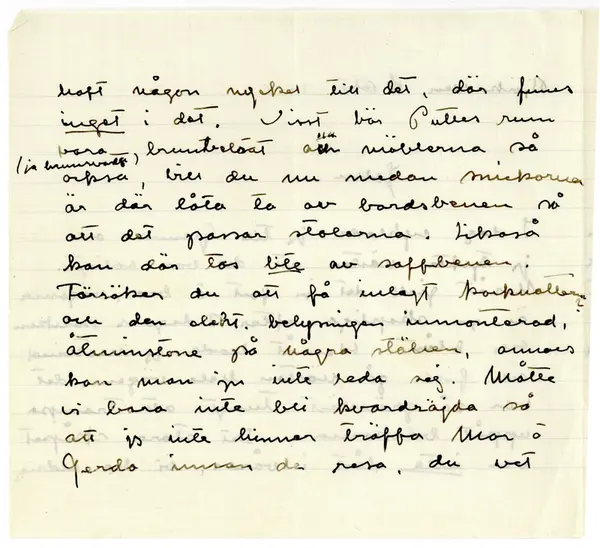 haft någon nyckel till det, där finns
inget i det. Visst bör Puttes rum
vara brunbetsat och möblerna så
(ja brunsvart)
också, vill du nu medan snickarna
är där låta ta av bordsbenen så
att det passar stolarna. Likaså
kan där tas lite av soffbenen.
Försöker du att få inlagt korkmattan
och den elekt. belysningen inmonterad,
åtminstone på några ställen, annars
kan man ju inte reda sig. Måtte
vi bara inte bli kvardröjda så
att jg inte hinner träffa Mor o
Gerda innan de resa, du vet